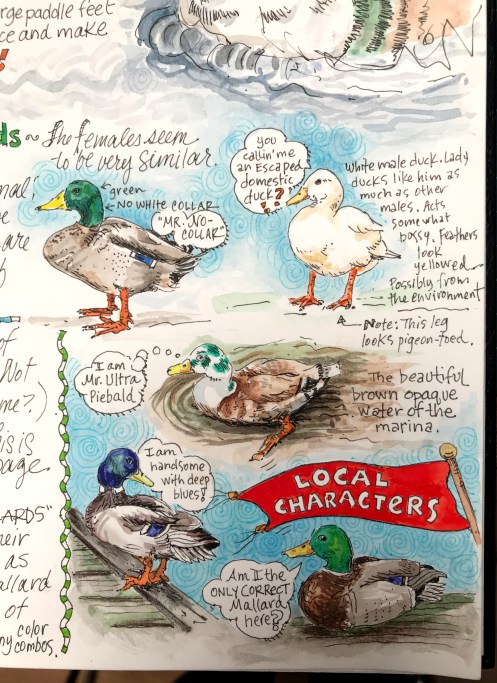 rge paddle feet
ce and make
!
ds ~ The females seem
to be very similar.
nal"
e
are
b
green
NO WHITE COLLAR
"MR. NO-
COLLAR"
you
callin' me
an Escaped
domestic
duck??
White male duck. Lady
ducks like him as
much as other
males. Acts
somewhat
bossy. Feathers
look
yellowed
Possibly from
the environment
Note: This leg
looks pigeon-toed.
of
Not
me?.)
is is
page.
I am
Mr. Ultra
Piebald.
The beautiful
brown opaque
water of the
marina.
I am
handsome
with deep
blues!
LOCAL
CHARACTERS
ARDS"
eir
as
allard
of
color
ny combos.
Am I the
ONLY CORRECT
Mallard
here?